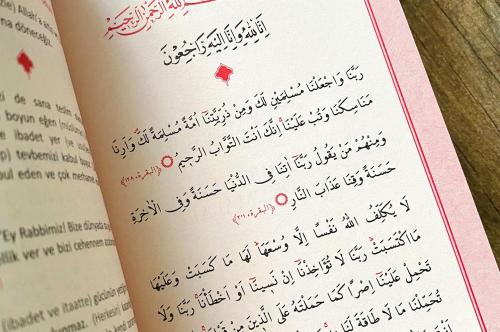 Allah'a
döneceğiz.
de sana teslim
boyun eğen
ibadet yer
tevbemizi kabul
eden ve çok
"Ey Rabbimiz! Bize dünyada
ver ve bizi cehennem
(ibadet ve itaatte) gücünün
(Herkesin)
اللهِ الرَّحْمٰنِ الرَّحِيمِ
اِنَّا لِلّٰهِ وَاِنَّا اِلَيْهِ رَاجِعُونَ
رَبَّنَا وَاجْعَلْنَا مُسْلِمَيْنِ لَكَ وَمِنْ ذُرِّيَّتِنَا اُمَّةً مُسْلِمَةً لَكَ وَاَرِنَا
مَنَاسِكَنَا وَتُبْ عَلَيْنَا اِنَّكَ اَنْتَ التَّوَّابُ الرَّحِيمُ ﴿البقرة، ١٢٨﴾
وَمِنْهُمْ مَنْ يَقُولُ رَبَّنَا اٰتِنَا فِي الدُّنْيَا حَسَنَةً وَفِي الْاٰخِرَةِ
حَسَنَةً وَقِنَا عَذَابَ النَّارِ ﴿البقرة، ٢٠١﴾
لَا يُكَلِّفُ اللهُ نَفْسًا اِلَّا وُسْعَهَا لَهَا مَا كَسَبَتْ وَعَلَيْهَا
مَا اكْتَسَبَتْ رَبَّنَا لَا تُؤَاخِذْنَا اِنْ نَسِينَا اَوْ اَخْطَأْنَا رَبَّنَا وَلَا
تَحْمِلْ عَلَيْنَا اِصْرًا كَمَا حَمَلْتَهُ عَلَى الَّذِينَ مِنْ
تُحَمِّلْنَا مَا لَا طَاقَةَ لَنَا